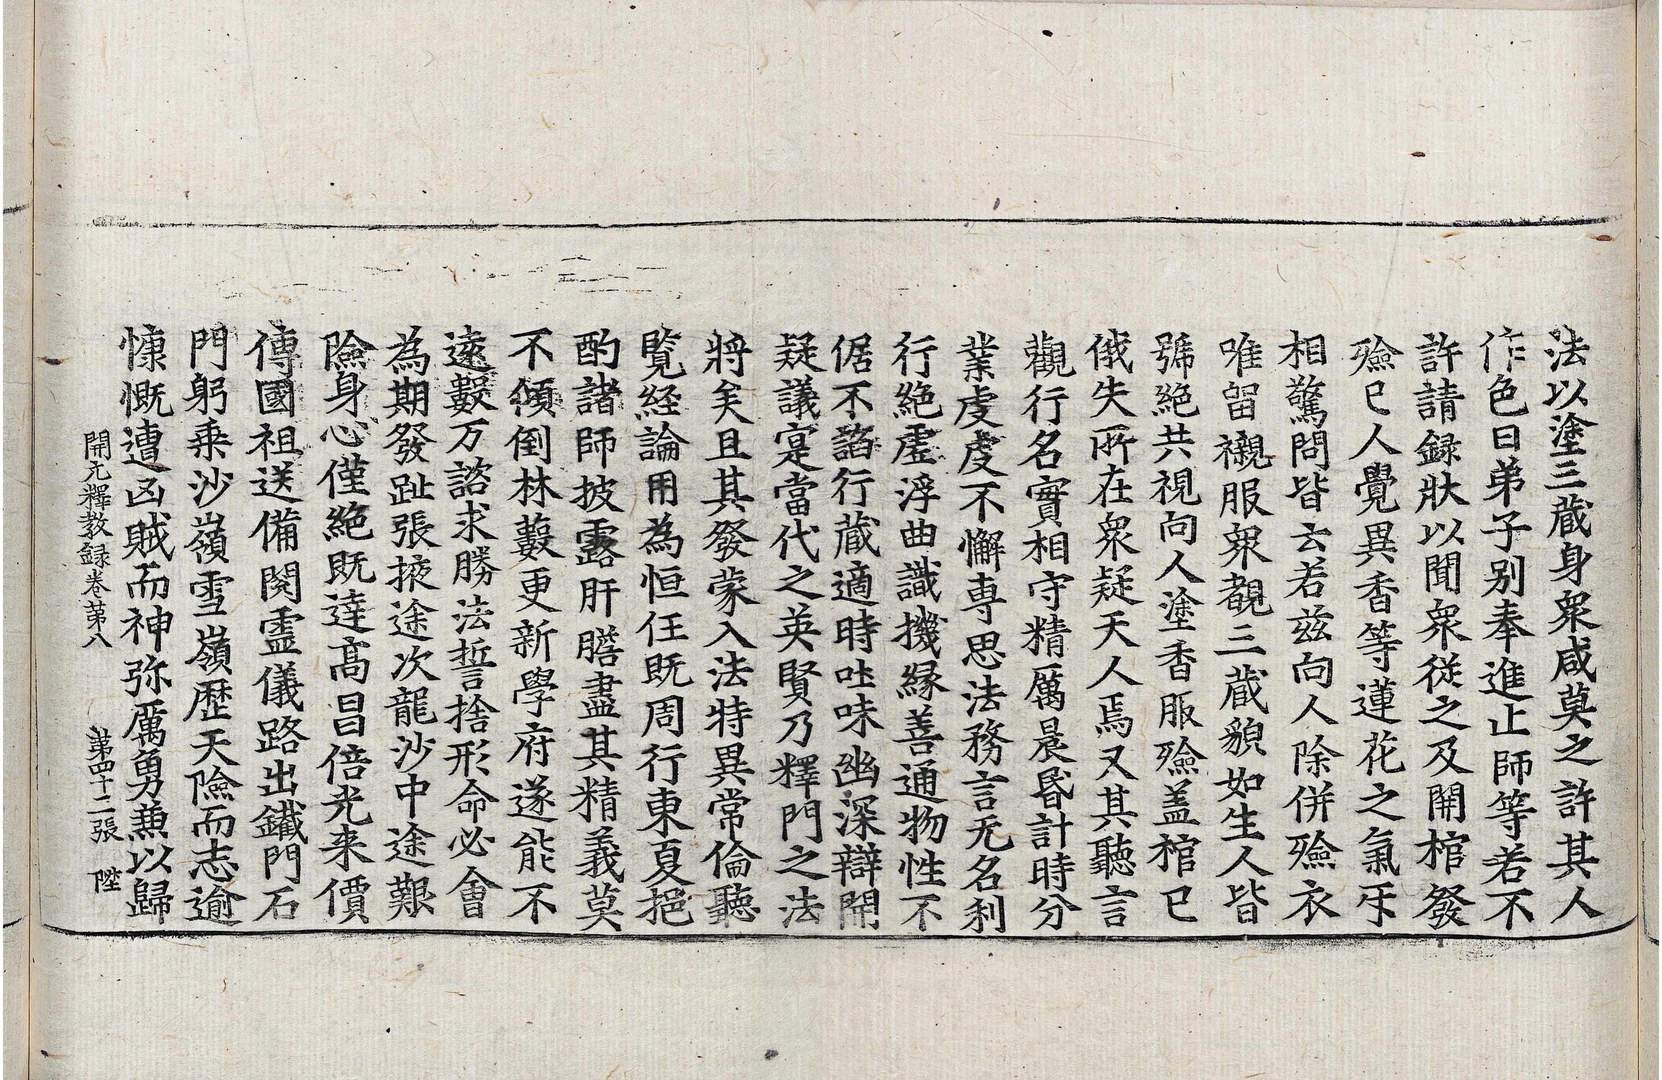 法以塗三蔵身衆咸莫之許其人
作色曰弟子別奉進止師等若不
許請録狀以聞衆従之及開棺發
殮已人覺異香等蓮花之氣牙
相驚問皆云若兹向人除併殮衣
唯留襯服衆覩三蔵貌如生人皆
號絶共視向人塗香服殮盖棺已
俄失所在衆疑天人焉又其聽言
觀行名實相守精厲晨昏計時分
業虔虔不懈専思法務言无名利
行絶虚浮曲識機縁善通物性不
倨不諂行蔵適時吐味幽深辯開
疑議寔當代之英賢乃釋門之法
將矣且其發蒙入法特異常倫聽
覽経論用為恒任既周行東夏挹
酌諸師披露肝膽盡其精義莫
不傾倒林藪更新學府遂能不
逺數万諮求勝法誓捨形命必會
為期發趾張掖途次龍沙中途艱
險身心僅絶既達髙昌倍光来價
傳國祖送備閱靈儀路出鐵門石
門躬乗沙嶺雪嶺歷天險而志逾
慷慨遭凶賊而神弥厲勇兼以歸
開元釋教録卷第八 第四十二張 陞